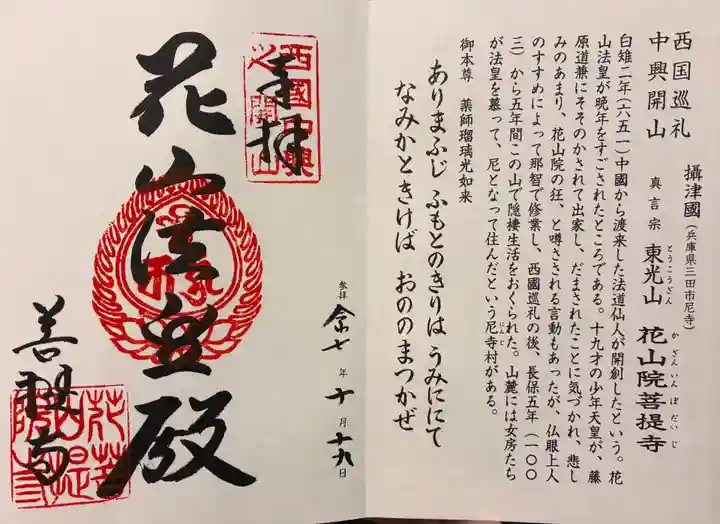 西国巡礼
中興開山
攝津國(兵庫県三田市尼寺)
真言宗 東光山 花山院菩提寺
とうこうざん かざんいんぼだいじ
白雉二年(六五一)中國から渡来した法道仙人が開創したという。花
山法皇が晩年をすごされたところである。十九才の少年天皇が、藤
原道兼にそそのかされて出家し、だまされたことに気づかれ、悲し
みのあまり、花山院の狂、と噂される言動もあったが、仏眼上人
のすすめによって那智で修業し、西國巡礼の後、長保五年(一〇〇
三)から五年間この山で隠棲生活をおくられた。山麓には女房たち
が法皇を慕って、尼となって住んだという尼寺村がある。
にんじ
御本尊 薬師瑠璃光如来
ありまふじ ふもとのきりは うみににて
なみかときけば おののまつかぜ
奉拝
西國中興
之開山
花山法皇殿
参拝 令七年十月十九日
菩提寺
花山院菩提寺